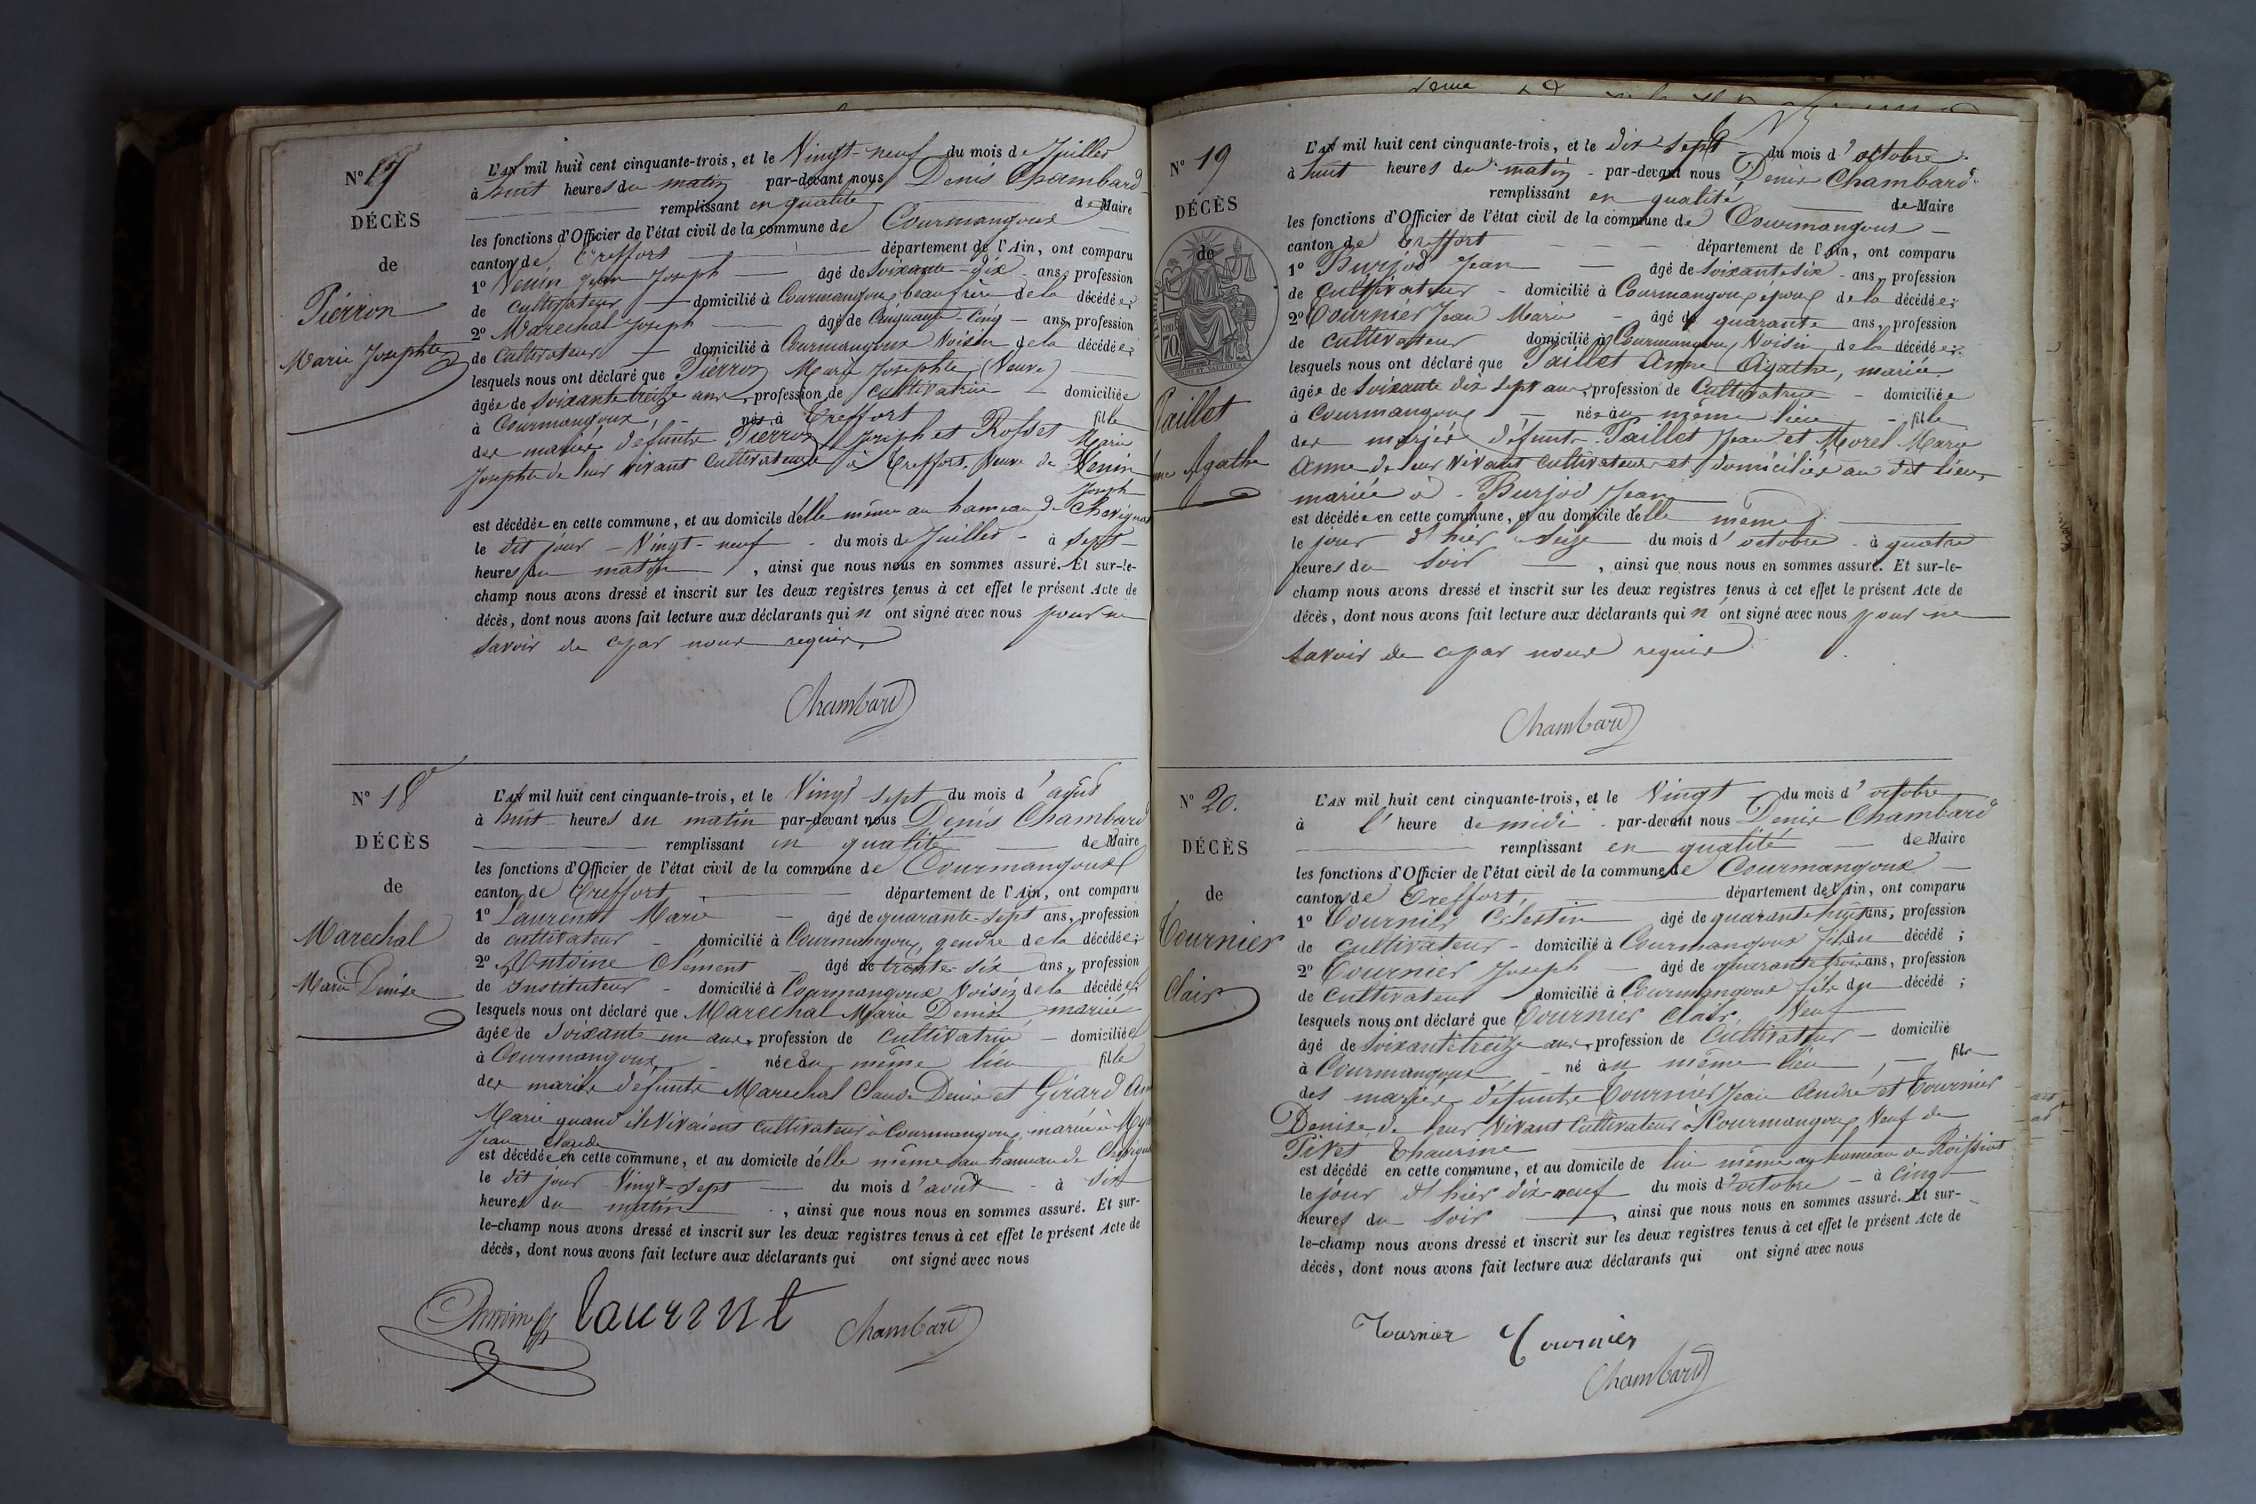 N° 17
DÉCÈS
de
Pierron
Marie Josephte
L'AN mil huit cent cinquante-trois, et le Vingt-neuf du mois de Juillet
à huit heures du matin par-devant nous Denis Chambard
remplissant en qualité de Maire
les fonctions d'Officier de l'état civil de la commune de Courmangoux
canton de Treffort département de l'Ain, ont comparu
1° Venin Jean Joseph âgé de Soixante-dix ans, profession
de cultivateur domicilié à Courmangoux, beaufrère de la décédée;
2° Marechal Joseph âgé de Cinquante-Cinq ans, profession
de Cultivateur domicilié à Courmangoux Voisin de la décédée;
lesquels nous ont déclaré que Pierron Marie Josephte (Veuve)
âgée de Soixante treize ans, profession de Cultivatrice domiciliée
à Courmangoux, née à Treffort fille
des mariés défunts Pierron Joseph et Marie
Josephte de leur vivant Cultivateurs à Treffort, Veuve de Venin
Joseph
est décédée en cette commune, et au domicile d'elle même au hameau de
le dit jour Vingt-neuf du mois de Juillet à Sept
heures du matin, ainsi que nous nous en sommes assuré. Et sur-le-
champ nous avons dressé et inscrit sur les deux registres tenus à cet effet le présent Acte de
décès, dont nous avons fait lecture aux déclarants qui n'ont signé avec nous pour ne
Savoir de ce par nous requis.
Chambard
N° 18
DÉCÈS
de
Marechal
Marie Denise
L'AN mil huit cent cinquante-trois, et le Vingt sept du mois d'août
à huit heures du matin par-devant nous Denis Chambard
remplissant en qualité de Maire
les fonctions d'Officier de l'état civil de la commune de Courmangoux
canton de Treffort département de l'Ain, ont comparu
1° Laurent Marie âgé de quarante-sept ans, profession
de cultivateur domicilié à Courmangoux, gendre de la décédée;
2° Antoine Clément âgé de trente-six ans, profession
de Instituteur domicilié à Courmangoux Voisin de la décédée;
lesquels nous ont déclaré que Marechal Marie Denise mariée
âgée de Soixante un ans, profession de Cultivatrice domiciliée
à Courmangoux, née au même lieu fille
des mariés défunts Marechal Claude Denis et Girard
Marie quand ils Vivaient cultivateurs à Courmangoux, mariée à
Jean Claude
est décédée en cette commune, et au domicile d'elle même au hameau de
le dit jour Vingt-sept du mois d'août à six
heures du matin, ainsi que nous nous en sommes assuré. Et sur-
le-champ nous avons dressé et inscrit sur les deux registres tenus à cet effet le présent Acte de
décès, dont nous avons fait lecture aux déclarants qui ont signé avec nous
Antoine laurent Chambard
N° 19
DÉCÈS
de
Paillet
Agathe
L'AN mil huit cent cinquante-trois, et le dix-sept du mois d'octobre
à huit heures du matin par-devant nous Denis Chambard
remplissant en qualité de Maire
les fonctions d'Officier de l'état civil de la commune de Courmangoux
canton de Treffort département de l'Ain, ont comparu
1° Burjod Jean âgé de Soixante six ans, profession
de Cultivateur domicilié à Courmangoux époux de la décédée;
2° Tournier Jean Marie âgé de quarante ans, profession
de cultivateur domicilié à Courmangoux Voisin de la décédée;
lesquels nous ont déclaré que Paillet Anne Agathe, mariée
âgée de Soixante dix sept ans, profession de Cultivatrice domiciliée
à Courmangoux née au même lieu fille
des mariés défunts Paillet Jean et Morel Marie
Anne de leur Vivant cultivateurs et domiciliés au dit lieu,
mariée à Burjod Jean
est décédée en cette commune, et au domicile d'elle même
le jour d'hier seize du mois d'octobre à quatre
heures du Soir, ainsi que nous nous en sommes assuré. Et sur-le-
champ nous avons dressé et inscrit sur les deux registres tenus à cet effet le présent Acte de
décès, dont nous avons fait lecture aux déclarants qui n'ont signé avec nous pour ne
Savoir de ce par nous requis
Chambard
N° 20.
DÉCÈS
de
Tournier
Clair
L'AN mil huit cent cinquante-trois, et le Vingt du mois d'octobre
à l'heure de midi par-devant nous Denis Chambard
remplissant en qualité de Maire
les fonctions d'Officier de l'état civil de la commune de Courmangoux
canton de Treffort, département de l'Ain, ont comparu
1° Tournier Célestin âgé de quarante huit ans, profession
de Cultivateur domicilié à Courmangoux fils du décédé;
2° Tournier Joseph âgé de quarante trois ans, profession
de Cultivateur domicilié à Courmangoux fils du décédé;
lesquels nous ont déclaré que Tournier Clair, Veuf
âgé de Soixante treize ans, profession de Cultivateur domicilié
à Courmangoux né au même lieu, fils
des mariés défunts Tournier Jean André et Tournier
Denise, de leur Vivant Cultivateurs à Courmangoux Veuf de
Pivet
est décédé en cette commune, et au domicile de lui même au hameau de Roissiat
le jour d'hier dix-neuf du mois d'octobre à cinq
heures du Soir, ainsi que nous nous en sommes assuré. Et sur-
le-champ nous avons dressé et inscrit sur les deux registres tenus à cet effet le présent Acte de
décès, dont nous avons fait lecture aux déclarants qui ont signé avec nous
Tournier Tournier
Chambard